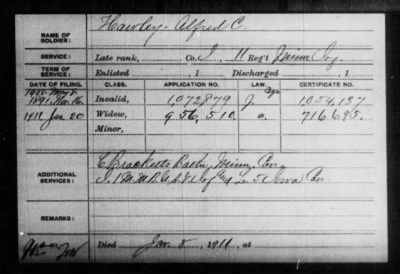 NAME OF SOLDIER: Hawley, Alfred C.
SERVICE: Late rank, Co. I, 11 Reg't Minn Inf.
TERM OF SERVICE: Enlisted , 1 Discharged , 1
DATE OF FILING. CLASS. APPLICATION NO. LAW. CERTIFICATE NO.
1891, Mar. 16. Invalid, 1,072,879 J Age 1,054,137
1911 Jan. 20 Widow, 956,510 a. 716,695.
Minor,
ADDITIONAL SERVICES: C. Bracketts Battn, Minn. Cav.
Iowa Cav
REMARKS:
Died Jan 5, 1911, at